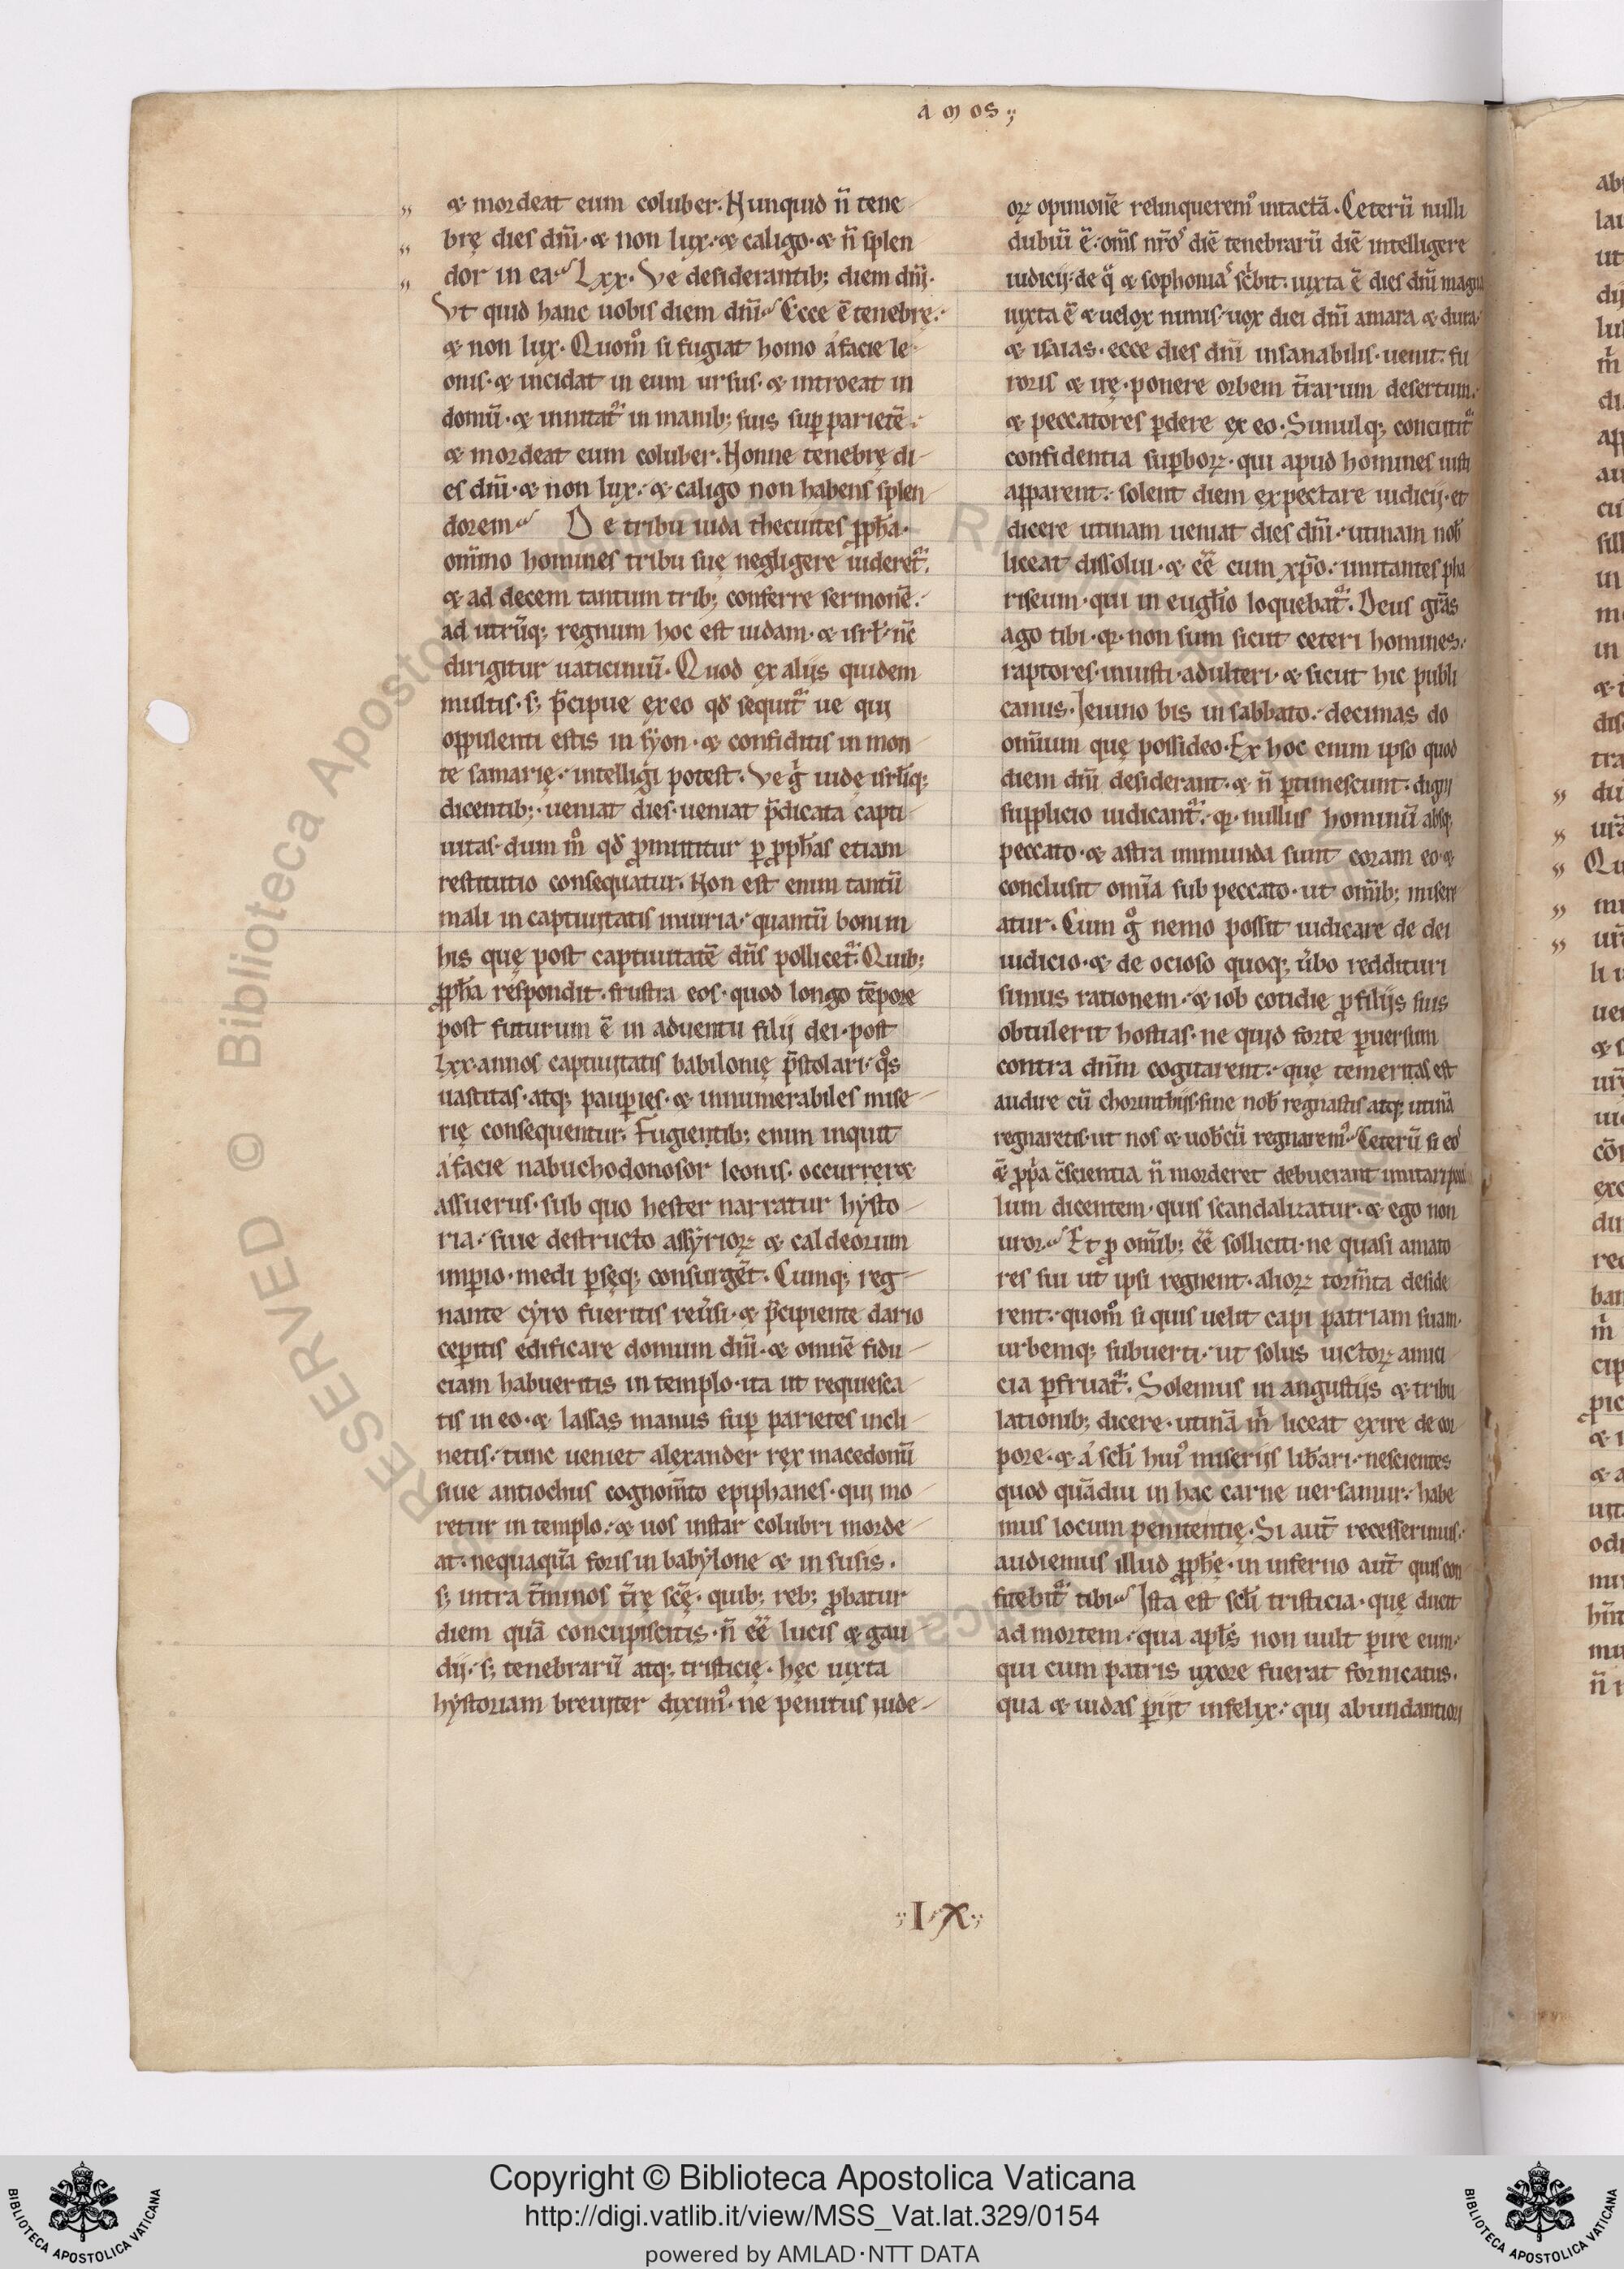 amos;
& mordeat eum coluber. Nunquid n̄ tene
brę dies dn̄i· & non lux· & caligo· & n̄ splen
dor in ea· Lxx. Ve desiderantib; diem dn̄i·
Vt quid hanc uobis diem dn̄i. Ecce ē tenebrę·
& non lux. Quom̊ si fugiat homo á facie le
onis· & incidat in eum ursus· & introeat in
domū· & innitat᷑ in manib; suis suꝑ parietē·
& mordeat eum coluber. Nonne tenebrę di
es dn̄i· & non lux· & caligo non habens splen
dorem. De tribu iuda thecuites ꝓph̄a·
om̄ino homines tribu suę negligere uideret᷑.
& ad decem tantum trib; conferre sermonē·
ad utrūq; regnum hoc est iudam· & isrł· nc̄
dirigitur uaticiniū. Quod ex aliis quidem
multis· s; p̄cipue ex eo qđ sequit᷑ ue qui
oppulenti estis in syon· & confiditis in mon
te samarię· intelligi potest. Ve g̍ iudę isrłiq;
dicentib;· ueniat dies· ueniat p̄dicata capti
uitas· dum m̊ qđ ꝓmittitur ꝑ ꝓph̄as etiam
restitutio consequatur. Non est enim tantū
mali in captiuitatis iniuria· quantū boni in
his quę post captiuitatē dn̄s pollicet᷑. Quib;
ꝓph̄a respondit· frustra eos· quod longo tēpore
post futurum ē in aduentu filii dei· post
lxx· annos captiuitatis babilonię p̄stolari· q̊s
uastitas· atq; pauꝑies· & innumerabiles mise
rię consequentur. Fugientib; enim inquit
á facie nabuchodonosor leonis· occurrer&
assuerus· sub quo hester narratur hysto
ria· siue destructo assyrioꝝ & caldeorum
imꝑio· medi ꝑsęq; consurgēt. Cumq; reg
nante cyro fueritis reu̍si· & p̄cipiente dario
ceperitis edificare domum dn̄i· & omnē fidu
ciam habueritis in templo· ita ut requiesca
tis in eo· & lassas manus suꝑ parietes incli
netis· tunc ueniet alexander rex macedonū
siue antiochus cognom̄to epiphanes· qui mo
retur in templo· & uos instar colubri morde
at· nequaquā foris in babylone & in susis·
s; intra t̄minos t̄rę scę̄· quib; reb; ꝓbatur
diem quā concupiscitis· n̄ ēē lucis & gau
dii· s; tenebrarū atq; tristicię· hęc iuxta
hystoriam breuiter diximꝰ· ne penitus iude
oꝝ opinionē relinqueremꝰ intactā. Ceterū nulli
dubiū ē· om̄s nr̄os diē tenebrarū diē intelligere
iudicii· de q̊ & sophonias sc̍bit· iuxta ē dies dn̄i magn
iuxta ē & uelox nimis· uox diei dn̄i amara & dura·
& isaias· ecce dies dn̄i insanabilis· uenit· fu
roris & irę· ponere orbem t̄rarum desertum·
& peccatores ꝑdere ex eo. Simulq; concutit᷑
confidentia suꝑboꝝ· qui apud homines iusti
apparent· solent diem expectare iudicii· et
dicere utinam ueniat dies dn̄i· utinam nob̄
liceat dissolui· & ēē cum xp̄o· imitantes pha
riseum· qui in eugł̄io loquebat᷑. Deus gr̄as
ago tibi· qꝛ non sum sicut ceteri homines·
raptores· iniusti· adulteri· & sicut hic publi
canus· Ieiuno bis in sabbato· decimas do
omnium quę possideo. Ex hoc enim ipso quod
diem dn̄i desiderant· & n̄ ꝑtimescunt· digni
supplicio iudicant᷑· qꝛ nullus hominū absq;
peccato· & astra inmunda sunt coram eo· &
conclusit om̄ia sub peccato· ut om̄ib; misere
atur. Cum g̊ nemo possit iudicare de dei
iudicio· & de ocioso quoq; u̍bo reddituri
simus rationem· & iob cotidie ꝓ filiis suis
obtulerit hostias· ne quid forte ꝑuersum
contra dn̄m cogitarent· que temeritas est
audire cū chorinthiis· sine nob̄ regnastis atq; utinā
regnaretis· ut nos & uob̄cū regnaremꝰ. Ceterū si eos
ꝓp̍a c̄scientia n̄ morderet debuerant imitari
lum dicentem· quis scandalizatur· & ego non
uror. Et ꝓ om̄ib; ēē solliciti· ne quasi amato
res sui ut ipsi regnent· alioꝝ torm̄ta deside
rent· quom̊ si quis uelit capi patriam suam·
urbemq; subuerti· ut solus uictoꝝ amici
cia ꝑfruat᷑. Solemus in angustiis & tribu
lationib; dicere· utinā m̍ liceat exire de cor
pore· & á scłi huiꝰ miseriis lib̄ari· nescientes
quod quādiu in hac carne uersamur· habe
mus locum penitentię. Si aut̄ recesserimus·
audiemus illud ꝓph̄ę· in inferno aut̄ quis con
fitebit᷑ tibi. Ista est scłi tristicia· quę ducit
ad mortem· qua apłs non uult ꝑire eum·
qui cum patris uxore fuerat fornicatus·
qua & iudas ꝑiit infelix· qui abundantiori
·I·X·
Copyright © Biblioteca Apostolica Vaticana
http://digi.vatlib.it/view/MSS_Vat.lat.329/0154
powered by AMLAD·NTT DATA
BIBLIOTECA APOSTOLICA VATICANA
BIBLIOTECA APOSTOLICA VATICANA